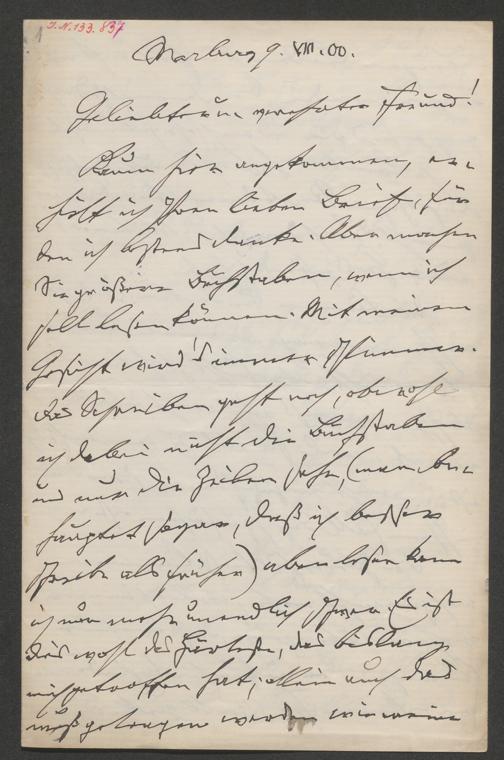 I.N. 133.837
1
Marburg 9. VIII. 00.
Geliebter u. verehrter Freund!
Kaum hier angekommen, er-
hielt ich Ihren lieben Brief, für
den ich bestens danke. Aber machen
Sie größere Buchstaben, wenn ich
soll lesen können. Mit meinem
Gesicht wird's immer schlimmer.
Das Schreiben geht noch, obwohl
ich dabei nicht die Buchstaben
und nur die Zeilen sehe, (man be-
hauptet sogar, daß ich besser
schreibe als früher) aber lesen kann
ich nur mehr unendlich schwer. Es ist
dies wohl das Härteste, das bislang
mich getroffen hat; allein auch das
muß getragen werden wie meine